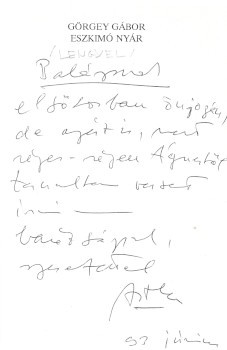 GÖRGEY GÁBOR
ESZKIMÓ NYÁR
(LENGYEL)
Balázsnak
elsősorban önjogán,
de azért is, mert
réges-régen Ágnestől
tanultam verset
írni
barátsággal,
szeretettel
92 június